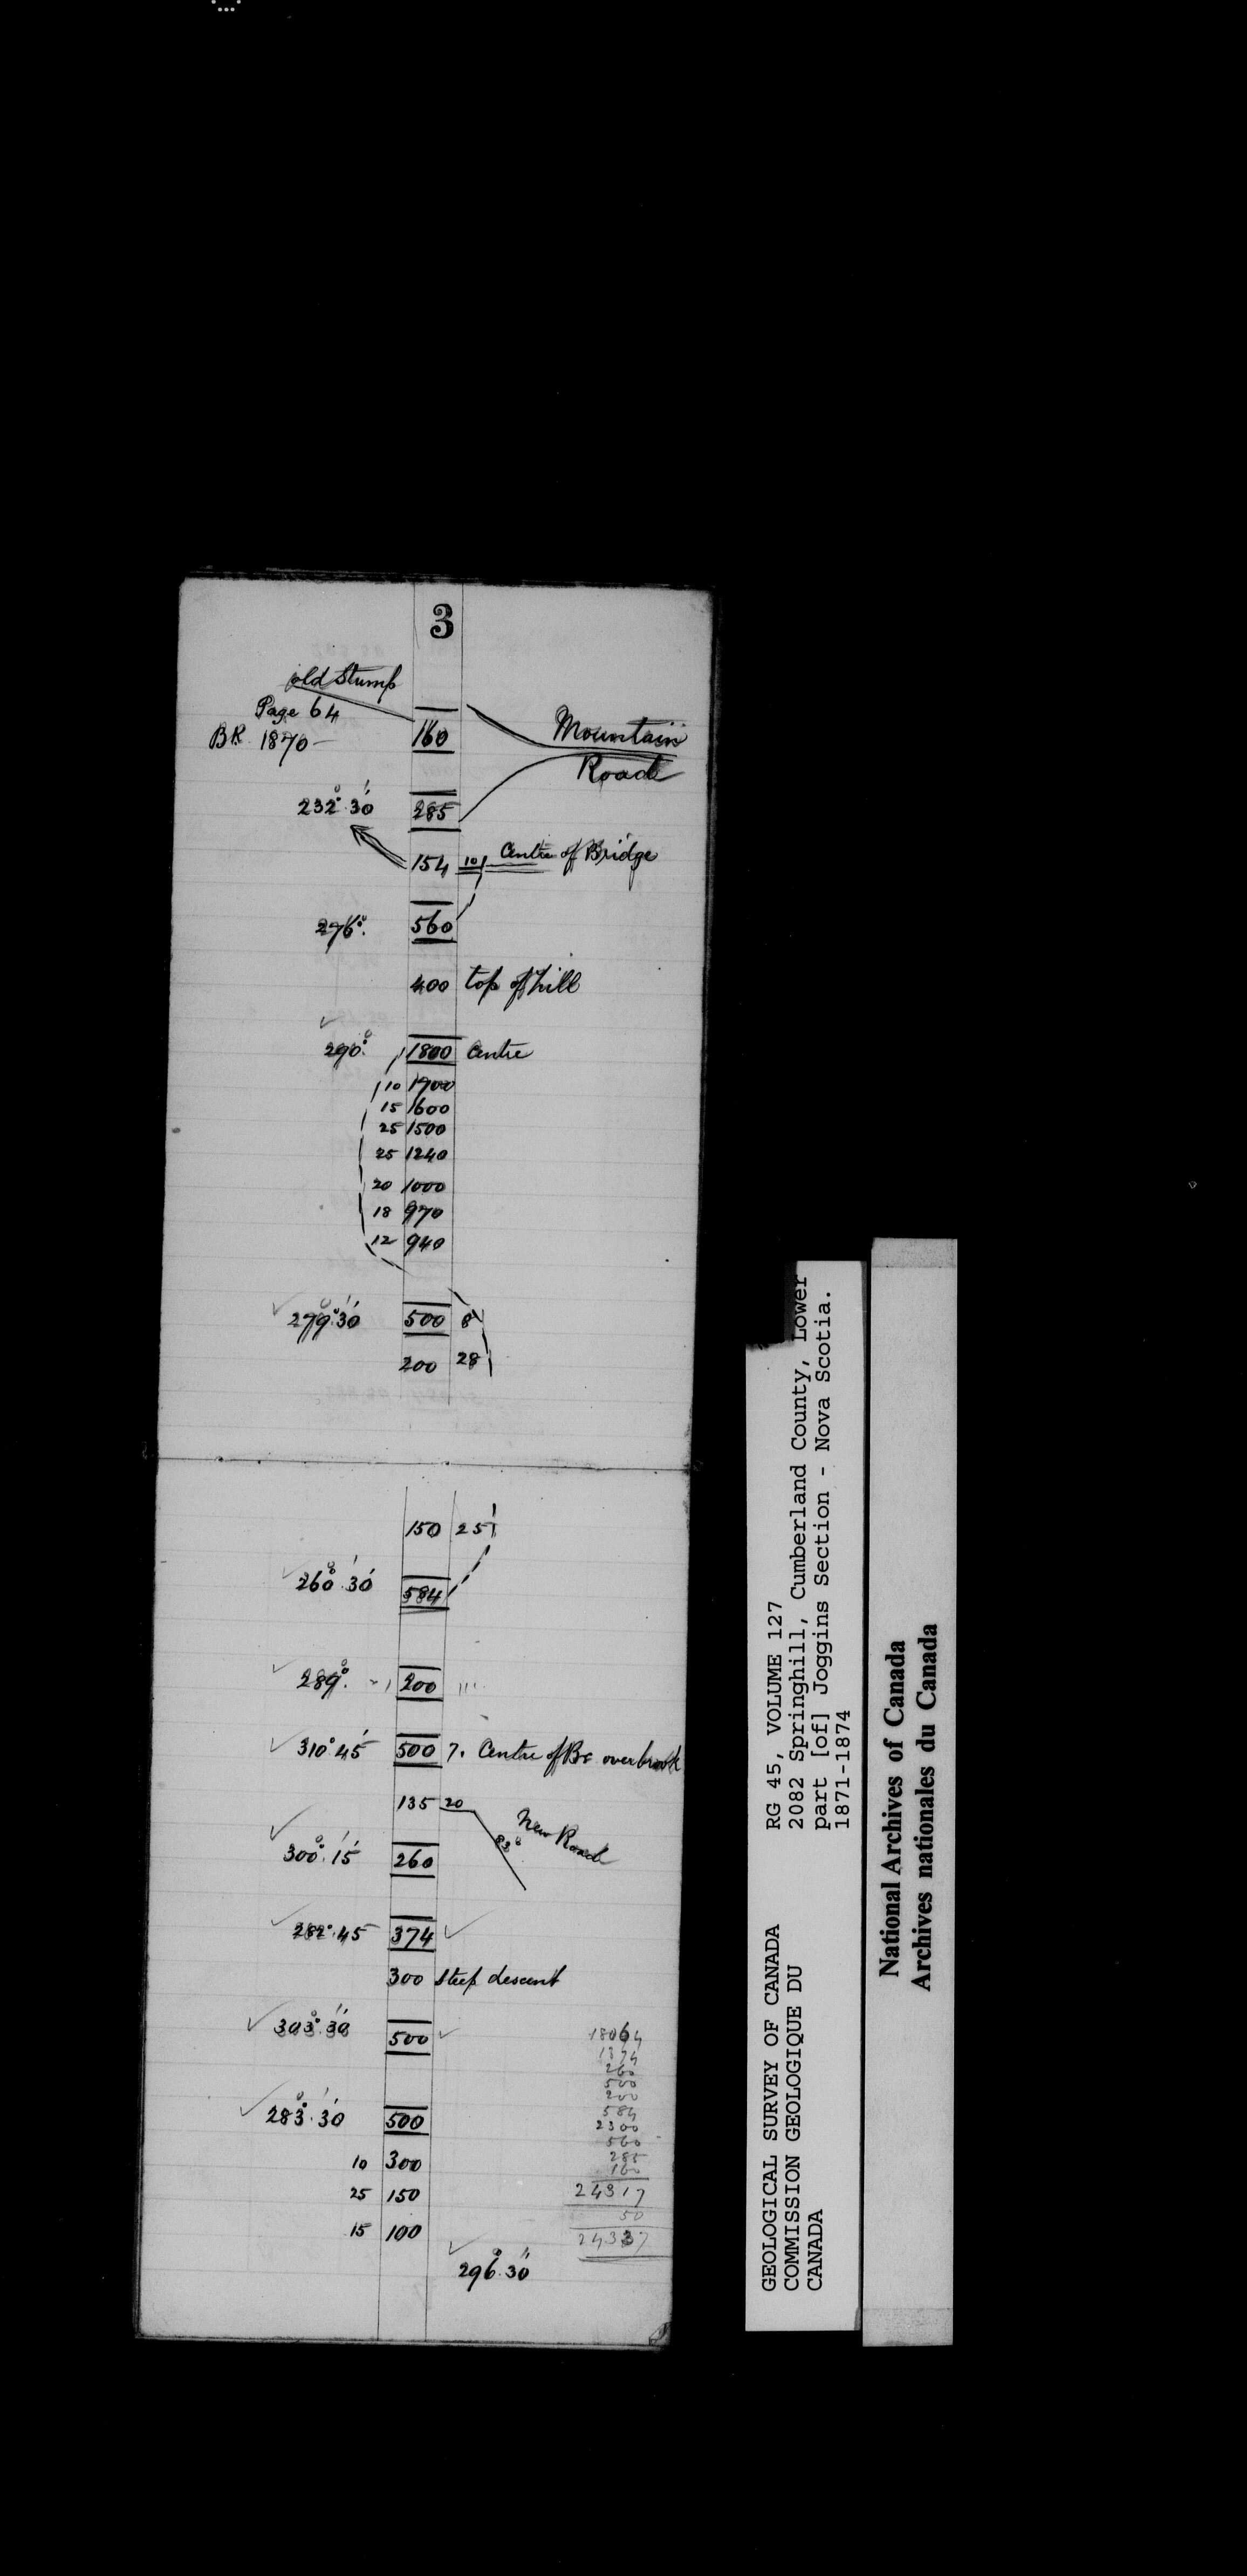 3
old Stump
Page 64
BR 1870 –
160
Mountain
Road
232° 30' 285
154 10 Centre of Bridge
276°. 560
400 top of hill
290°. 1800 Centre
10 1700
15 1600
25 1500
25 1240
20 1000
18 970
12 940
279° 30' 500 8
200 28
150 25
260° 30' 584
289°. 200
310° 45' 500 7. Centre of Br over brook
135 20
New Road
83°
300° 15' 260
282° 45 374
300 Steep descent
303° 30 500
283° 30' 500
10 300
25 150
15 100
296° 30'
18064
1374
260
500
200
584
2300
560
285
160
24317
50
24337
GEOLOGICAL SURVEY OF CANADA
COMMISSION GEOLOGIQUE DU
CANADA
RG 45, VOLUME 127
2082 Springhill, Cumberland County, Lower
part [of] Joggins Section - Nova Scotia.
1871-1874
National Archives of Canada
Archives nationales du Canada